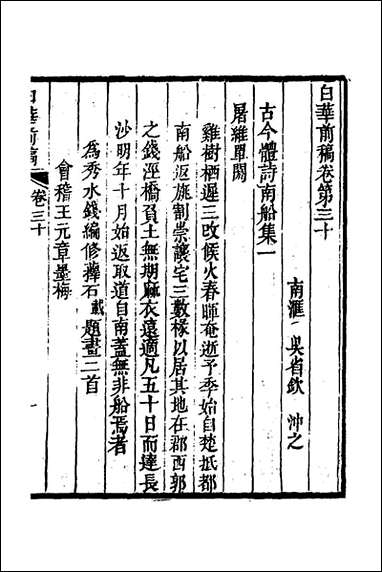 白華前稿卷第三十
南滙 吳省欽 沖之
古今體詩南船集一
屠維單閼
雞樹栖遲三改候火春暉奄逝予季始自楚抵都
南船返旐割崇讓宅三數椽以居其地在郡西郭
之錢涇橋貧土無期麻衣遠適凡五十日而達長
沙明年十月始返取道自南蓋無非船焉者
為秀水錢編修蘀石載題畫二首
會稽王元章墨梅
白華前稿
卷三十